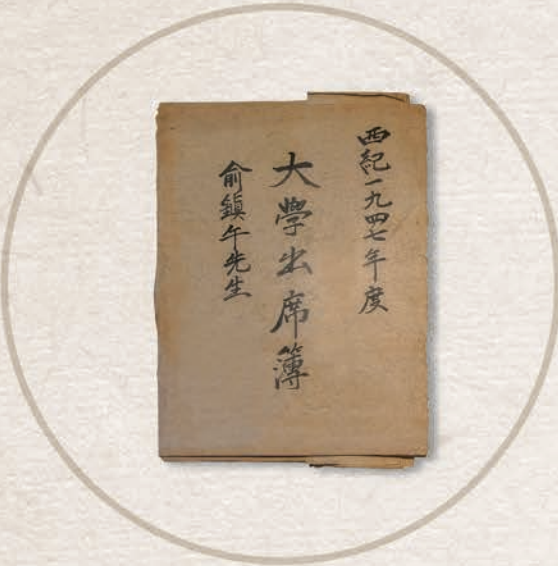 西紀一九四七年度
大學出席簿
俞鎭午先生